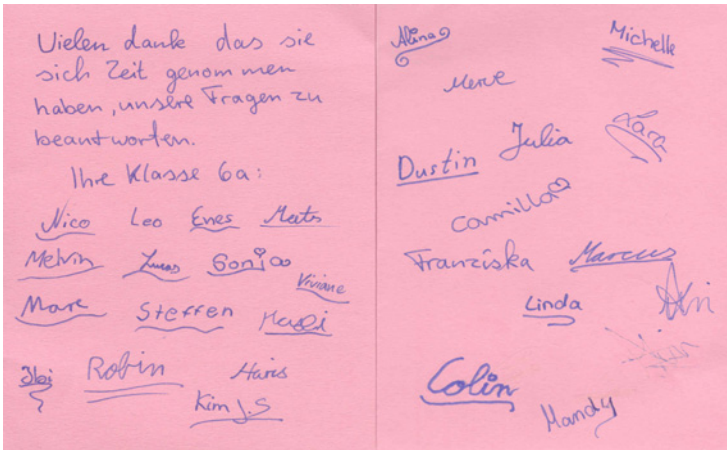 Vielen dank das sie
sich Zeit genommen
haben, unsere Fragen zu
beantworten.
Ihre Klasse 6a:
Nico Leo Enes Mats
Melvin Lucas Sonja
Viviane
Marc Steffen
Ibi Robin Haris
Kim J.S
Alina Michelle
Merve
Dustin Julia Lara
Camilla
Franziska Marcus
Linda
Colin
Mandy